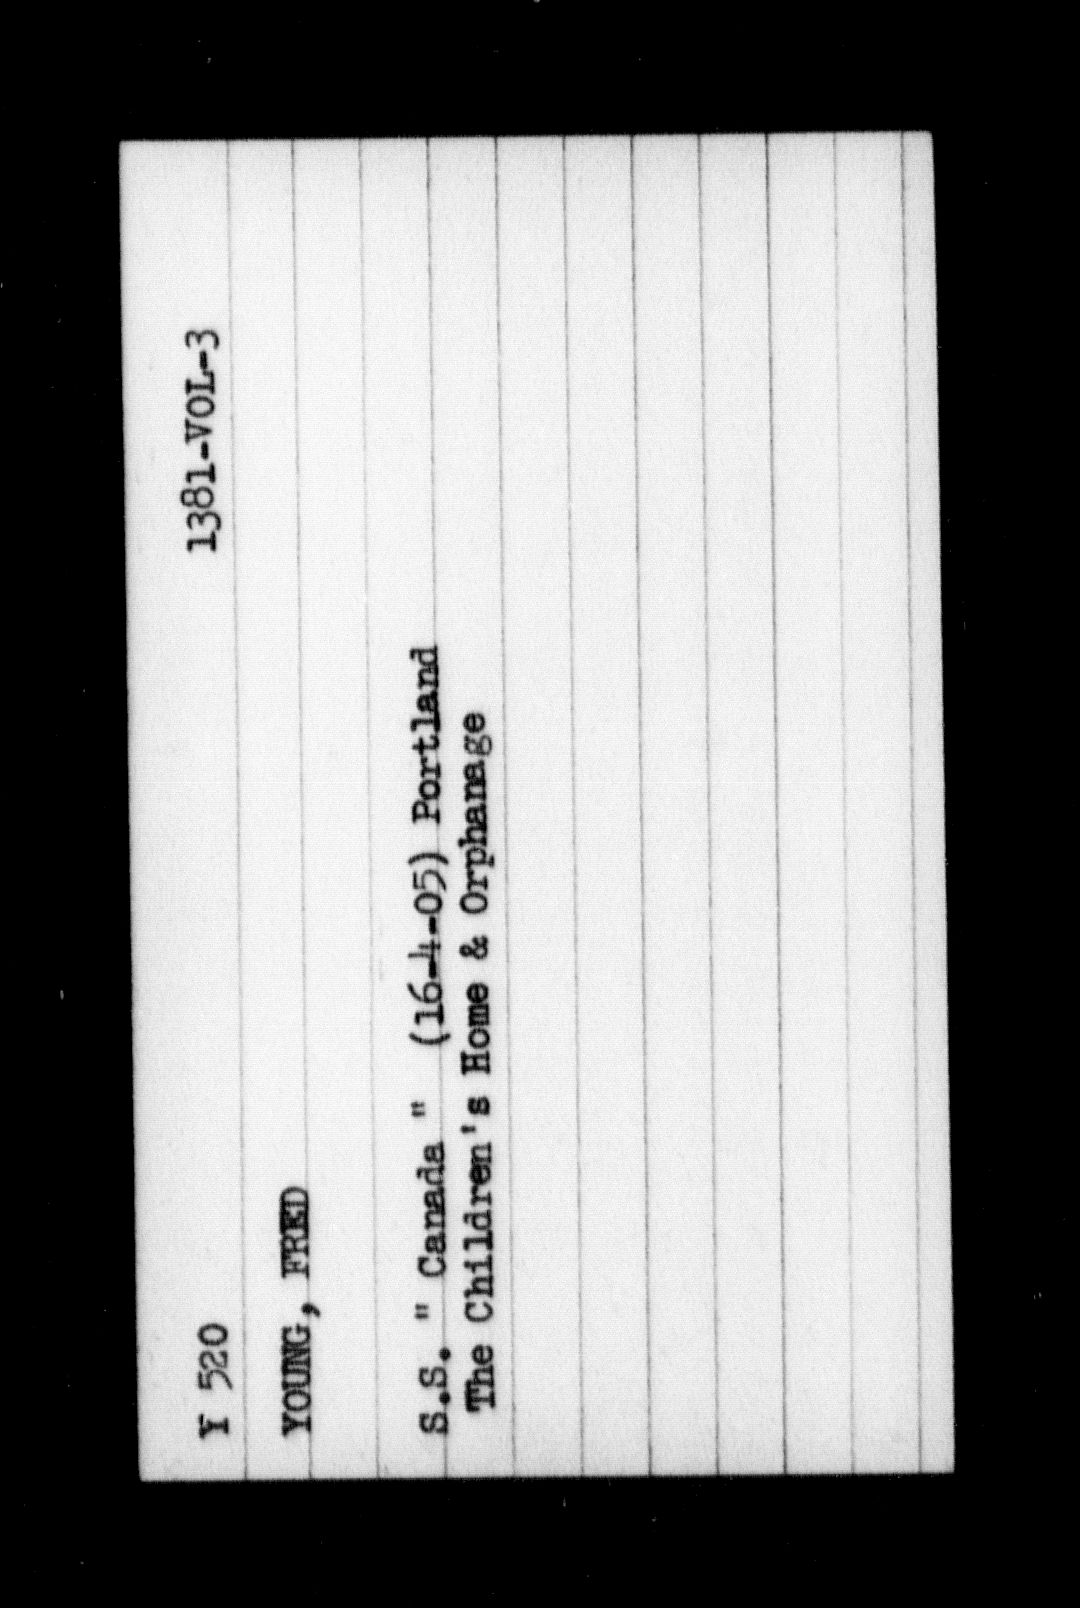 Y 520 1381-VOL-3
YOUNG, FRED
S.S. " Canada " (16-4-05) Portland
The Children's Home & Orphanage